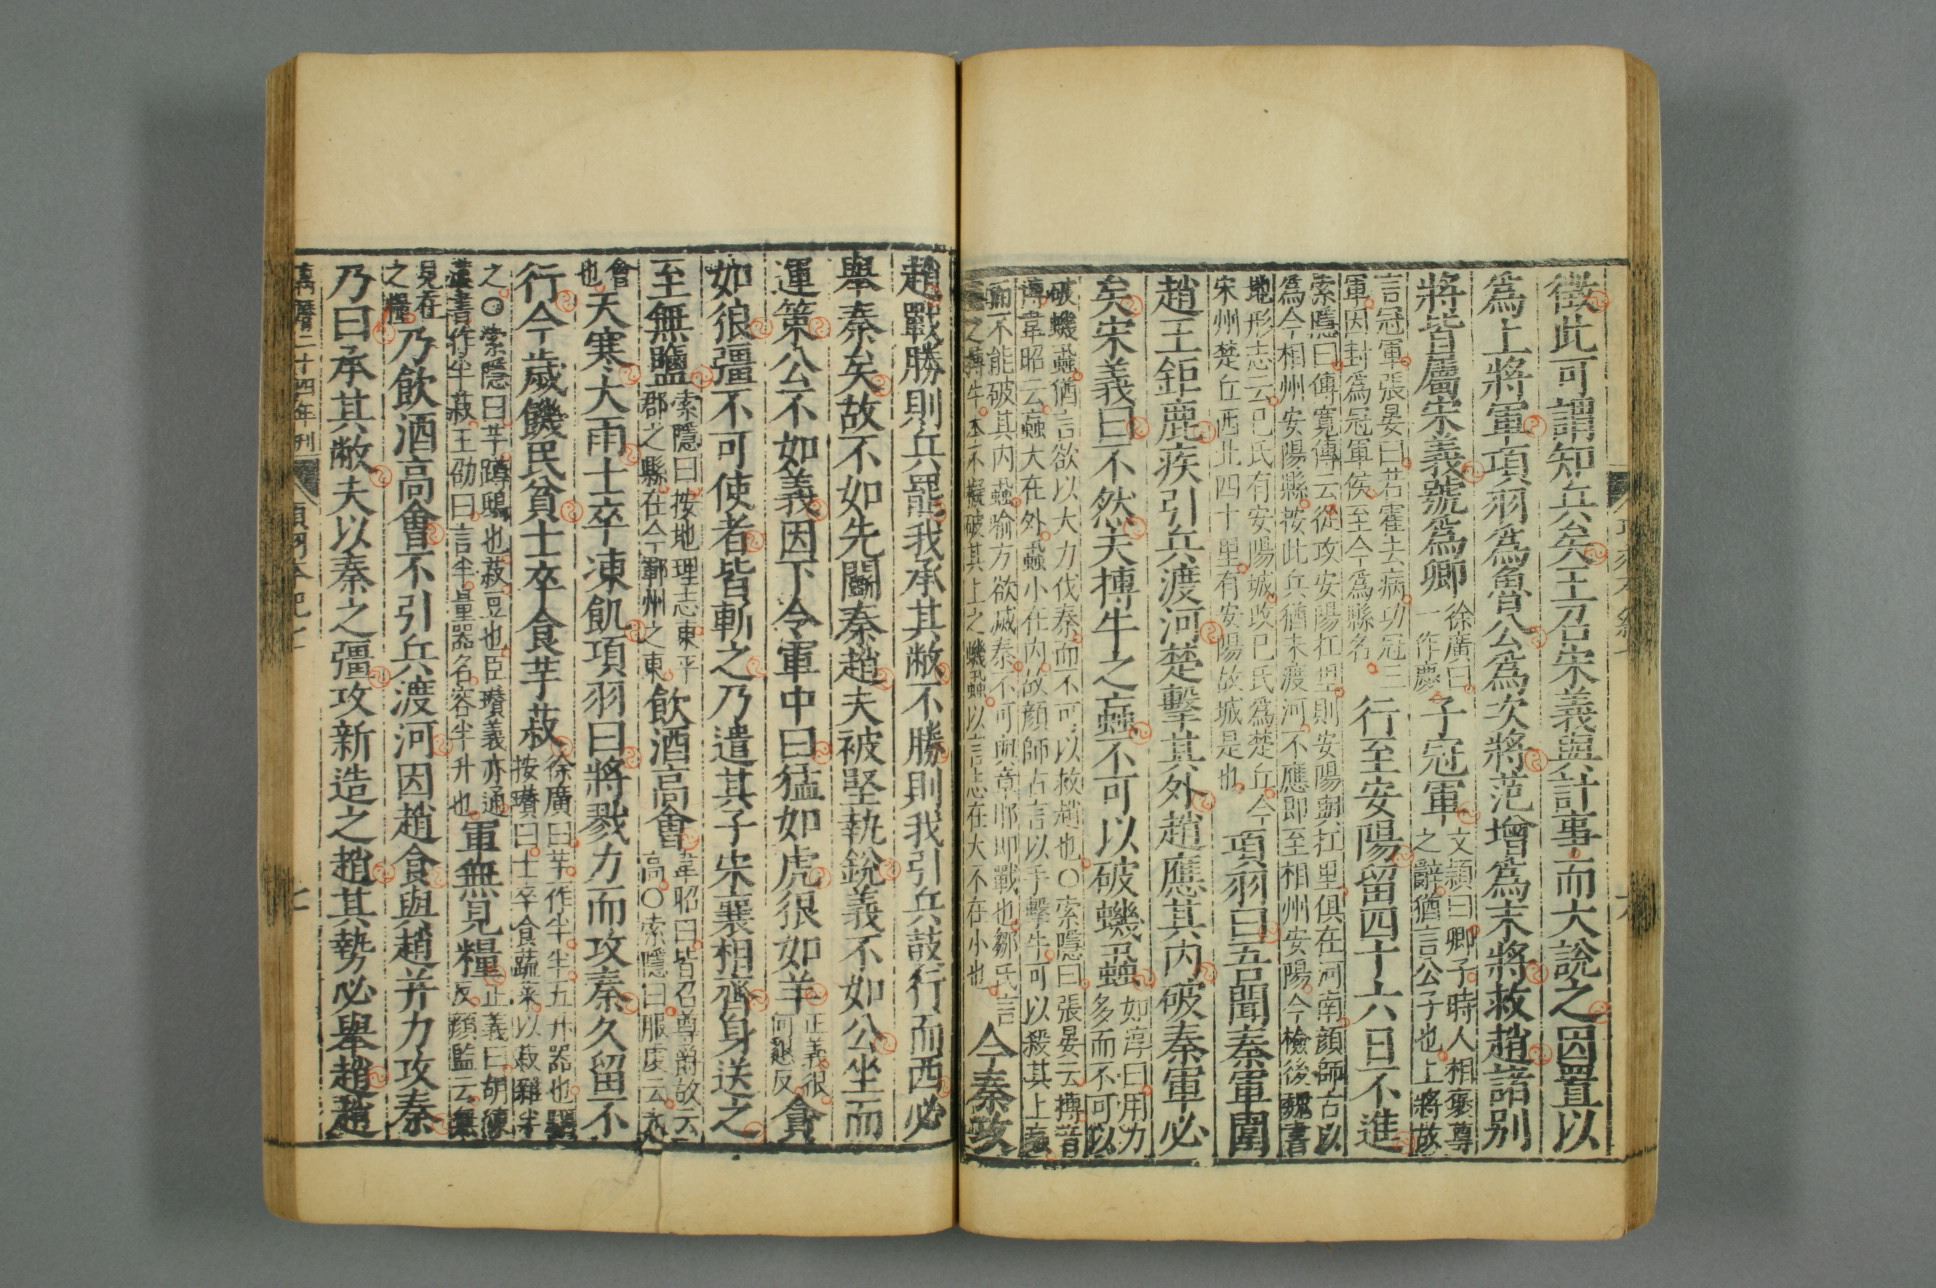 徵此可謂知兵矣王召宋義與計事而大說之因置以
爲上將軍項羽爲魯公爲次將范增爲末將救趙諸別
將皆屬宋義號爲卿
徐廣曰
一作慶
子冠軍
文頴曰卿子時人相褒尊
之辭猶言公子也上將故
言冠軍張晏曰若霍去病功冠三
軍因封爲冠軍侯至今爲縣名
行至安陽留四十六日不進
索隱曰傳寬傳云從攻安陽扛里則安陽與扛里俱在河南顔師古以
爲今相州安陽縣按此兵猶未渡河不應即至相州安陽今檢後魏書
地形志云已氏有安陽城改已氏爲楚丘今
宋州楚丘西北四十里有安陽故城是也
項羽曰吾聞秦軍圍
趙王鉅鹿疾引兵渡河楚擊其外趙應其内破秦軍必
矣宋義曰不然夫搏牛之蝱不可以破蟣蝨
如淳曰用力
多而不可以
破蟣蝨猶言欲以大力伐秦而不可以救趙也○索隱曰張晏云搏音
博韋昭云蝱大在外蝨小在内故顔師古言以手擊牛可以殺其上蝱
而不能破其内蝨喻方欲滅秦不可與章邯即戰也鄒氏言
之搏牛本不擬破其上之蟣蝨以言志在大不在小也
今秦攻
趙戰勝則兵罷我承其敝不勝則我引兵鼓行而西必
舉秦矣故不如先鬬秦趙夫被堅執銳義不如公坐而
運策公不如義因下令軍中曰猛如虎很如羊
正義很
何懇反
貪
如狼彊不可使者皆斬之乃遣其子宋襄相齊身送之
至無鹽
索隱曰按地理志東平
郡之縣在今鄆州之東
飲酒高會
韋昭曰皆召尊爵故云
高○索隱曰服虔云大
會
也
天寒大雨士卒凍飢項羽曰將戮力而攻秦久留不
行今歲饑民貧士卒食芋菽
徐廣曰芋作半半五升器也駰
按瓚曰士卒食蔬菜以菽雜半
之○索隱曰芋蹲鴟也菽豆也臣瓚義亦通
漢書作半菽王劭曰言半量器名容半升也
軍無見糧
正義曰胡練
反顔監云無
見在
之糧
乃飲酒高會不引兵渡河因趙食與趙并力攻秦
乃曰承其敝夫以秦之彊攻新造之趙其勢必舉趙趙
萬曆二十四年刊
項羽本紀七
七